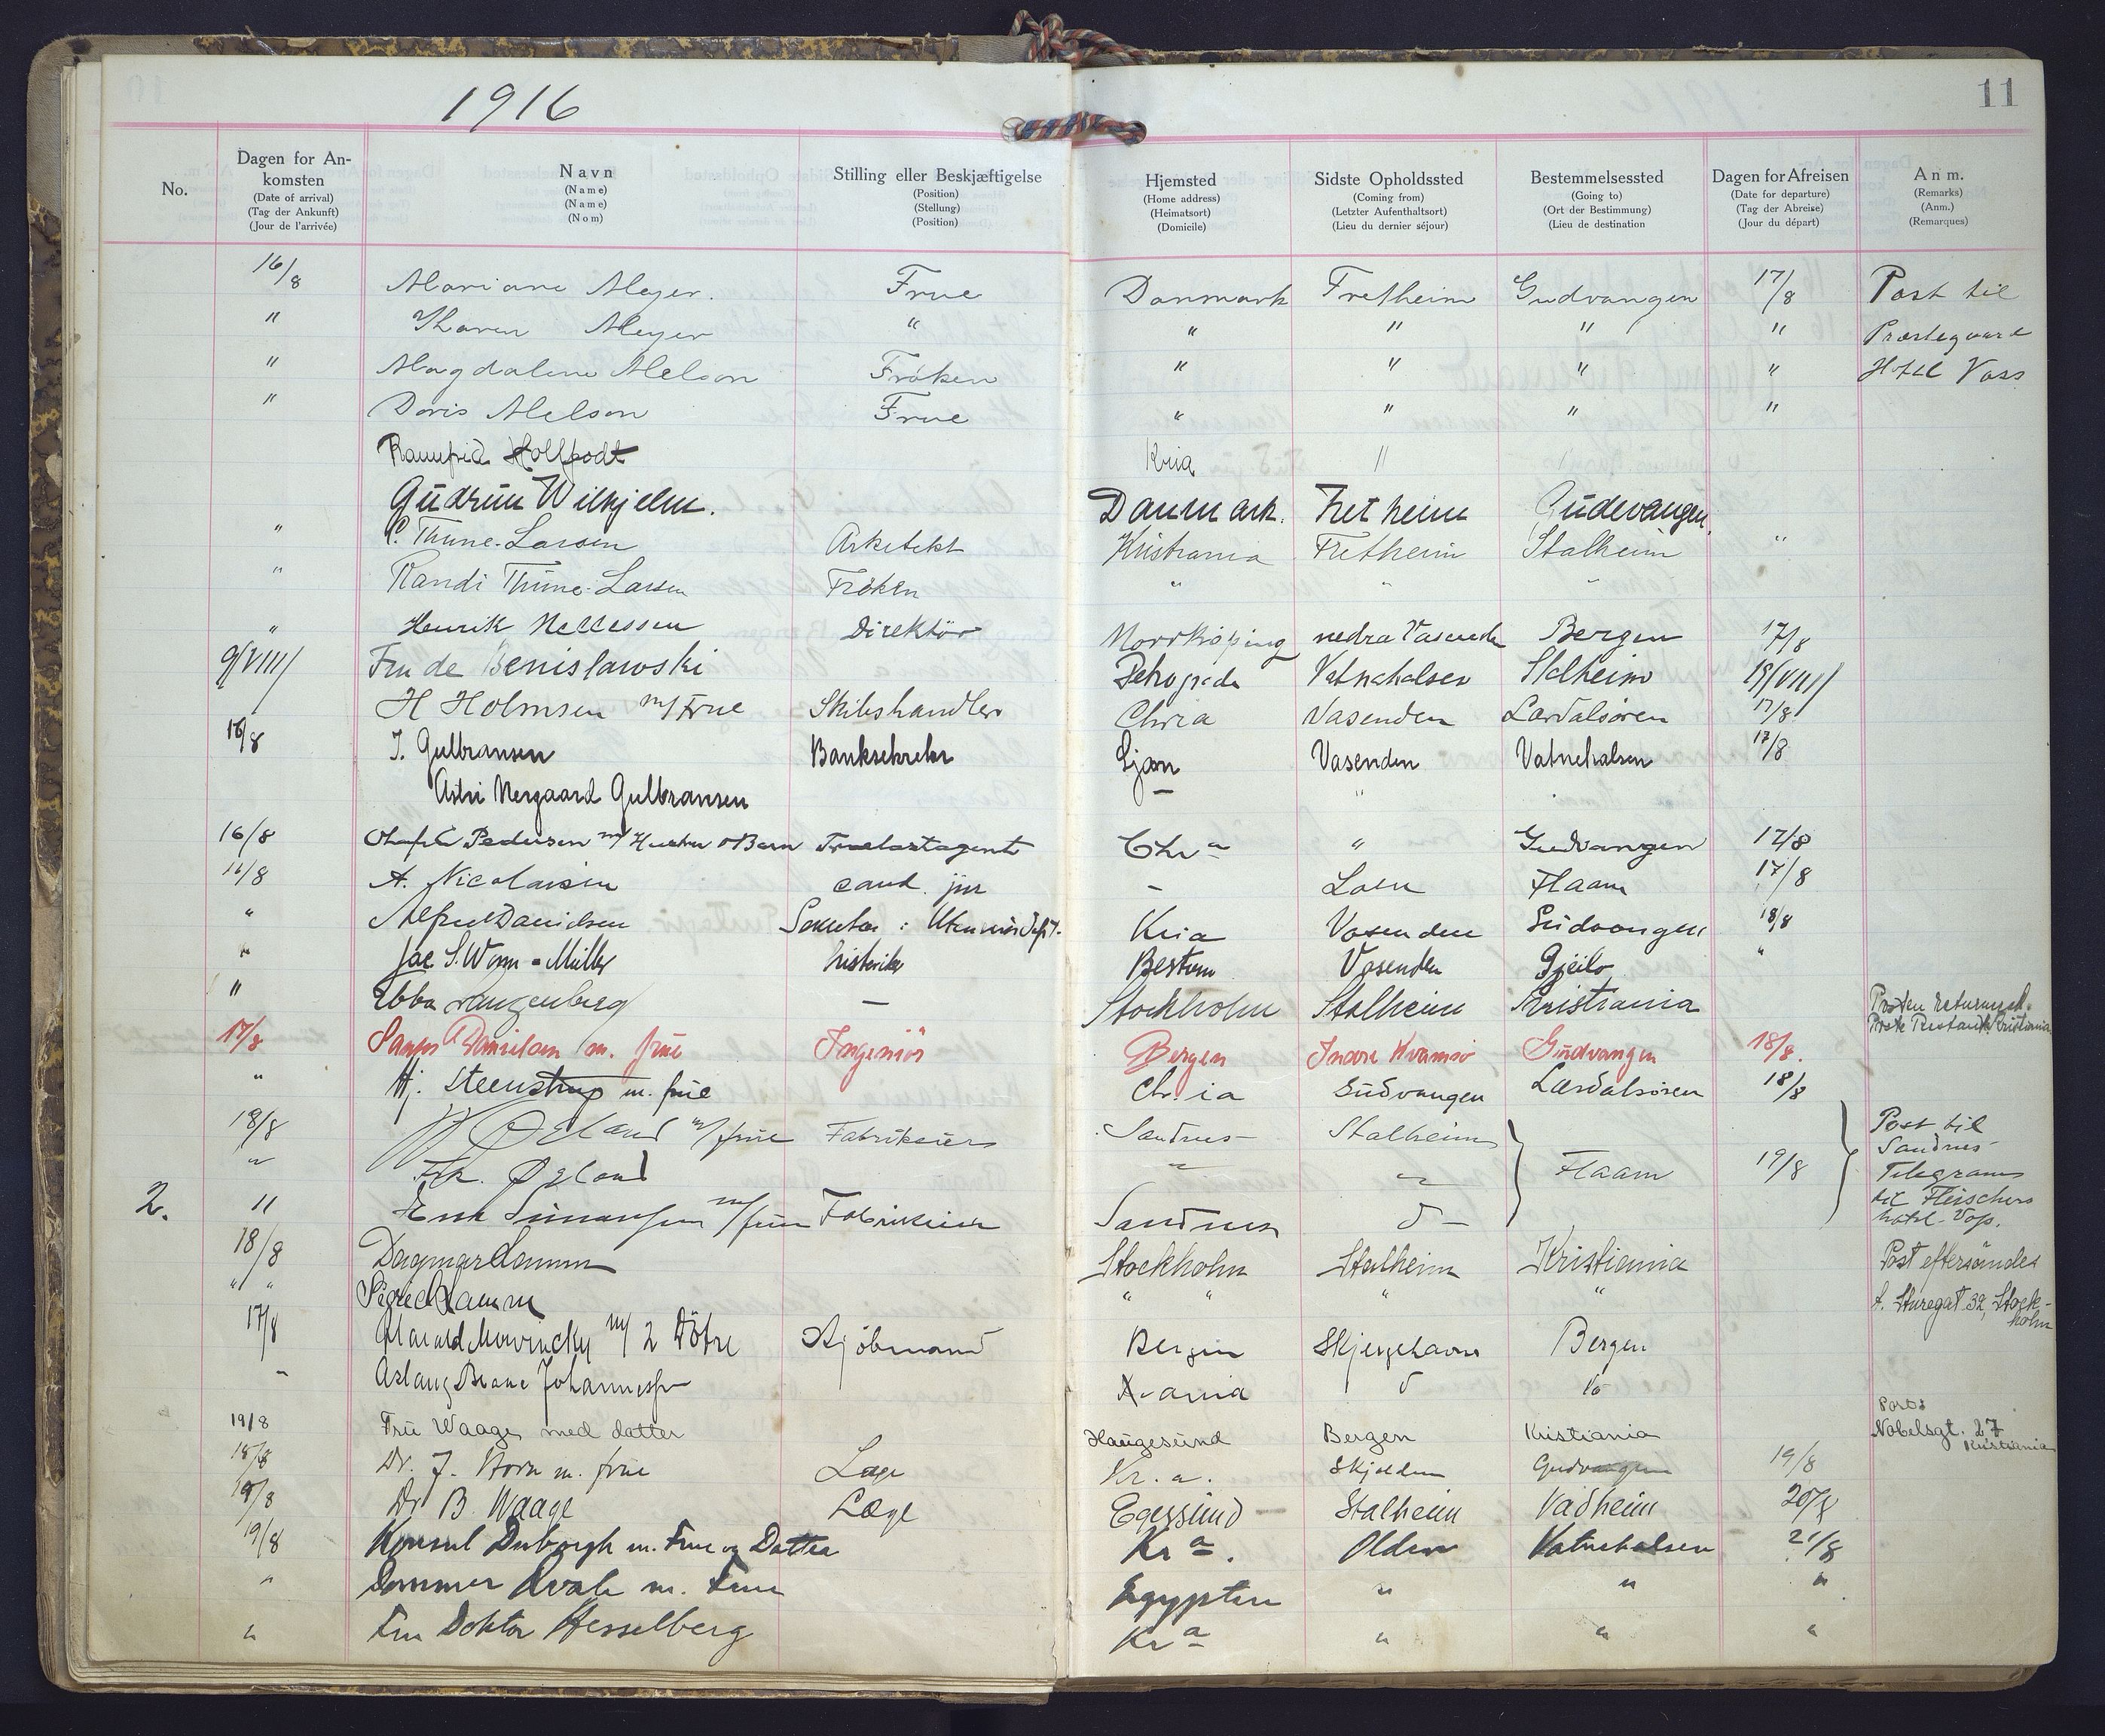 1916
11
No.
Dagen for An-
komsten
(Date of arrival)
(Tag der Ankunft)
(Jour de l'arrivée)
Navn
(Name)
(Name)
(Nom)
Stilling eller Beskjæftigelse
(Position)
(Stellung)
(Position)
Hjemsted
(Home address)
(Heimatsort)
(Domicile)
Sidste Opholdssted
(Coming from)
(Letzter Aufenthaltsort)
(Lieu du dernier séjour)
Bestemmelsessted
(Going to)
(Ort der Bestimmung)
(Lieu de destination
Dagen for Afreisen
(Date for departure)
(Tag der Abreise)
(Jour du départ)
Anm.
(Remarks)
(Anm.)
(Remarques)
16/8 Mariane Meyer. Frue Danmark Fretheim Gudvangen 17/8 Post til
" Karen Meyer " " " " " Præstegaard
" Magdalene Nelson Frøken " " " " Hotel Voss
" Doris Nelson Frue " " " "
Rannfrid Kria "
Gudrun Wilhjelm. Danmark. Fretheim Gudevangen.
" C. Thune-Larsen Arkitekt Kristiania Fretheim Stalheim "
" Randi Thune-Larsen Frøken " " "
" Henrik Direktör Norrköping nedra Vasenden Bergen 17/8
9/VIII/ Fru de Benislawski Vatnahalsen Stalheim 19/VIII/
H Holmsen m/ Frue Skibshandler Chria Vasenden Lærdalsøren 17/8
16/8 J. Gulbransen Banksekretær Ljan Vasenden Vatnehalsen 17/8
Astri Nergaard Gulbransen – "
16/8 Pedersen m/ Hustru o Barn Trælastagent Chra " Gudvangen 17/8
16/8 A. Nicolaisen cand. jur – Loen Flaam 17/8
" Alfred Danielsen Kria Vasenden Gudvangen 18/8
" Jac S. Worm-Müller historiker Bestum Vasenden Gjeilo "
" Ebba – Stockholm Stalheim Kristiania Posten
Poste Restante Kristiania
17/8 Danielsen m. frue Ingeniör Bergen Indre Kvamsø Gudvangen 18/8.
" Hj. Steenstrup m. frue Chr.ia Gudvangen Lærdalsøren 18/8
18/8 Øgland m/ frue Fabrikeier Sandnes Stalheim Post til
" Frk. Øgland " " Flaam 19/8 Sandnes
Telegrams
2. " m/ frue Fabrikeier Sandnes d– til Fleischers
hotel-Voss.
18/8 Dagmar Lamm Stockholm Stalheim Kristiania Post eftersändes
" " Sigrid Lamm " " " " t. Sturegat 32, Stock-
holm
17/8 Harald Mowinckel m/ 2 Döttre Kjöbmand Bergen Skjerjehavn Bergen
– Aslaug Johannessen d
19/8 Fru Waage med datter Haugesund Bergen Kristiania Nobelsgt. 27
Kristiania
18/8 Dr. J. Horn m. frue Læge Kr.a. Skjolden Gudvangen 19/8
19/8 Dr B. Waage Læge Egersund Stalheim Vadheim 20/8
19/8 Konsul Duborgh m. Frue og Datter Kra. Olden Vatnehalsen 21/8
" Dommer Qvale m. Frue Egypten " " "
" Fru Doktor Hesselberg Kra " " "